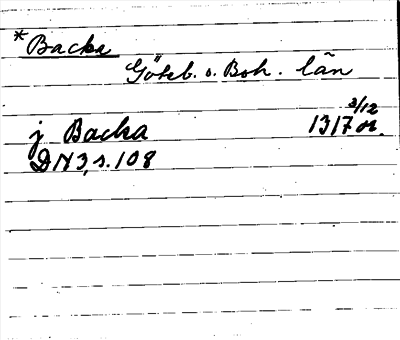 *Backa
Göteb. o. Boh. län
3/12
j Backa 1317 or.
DN3, s. 108